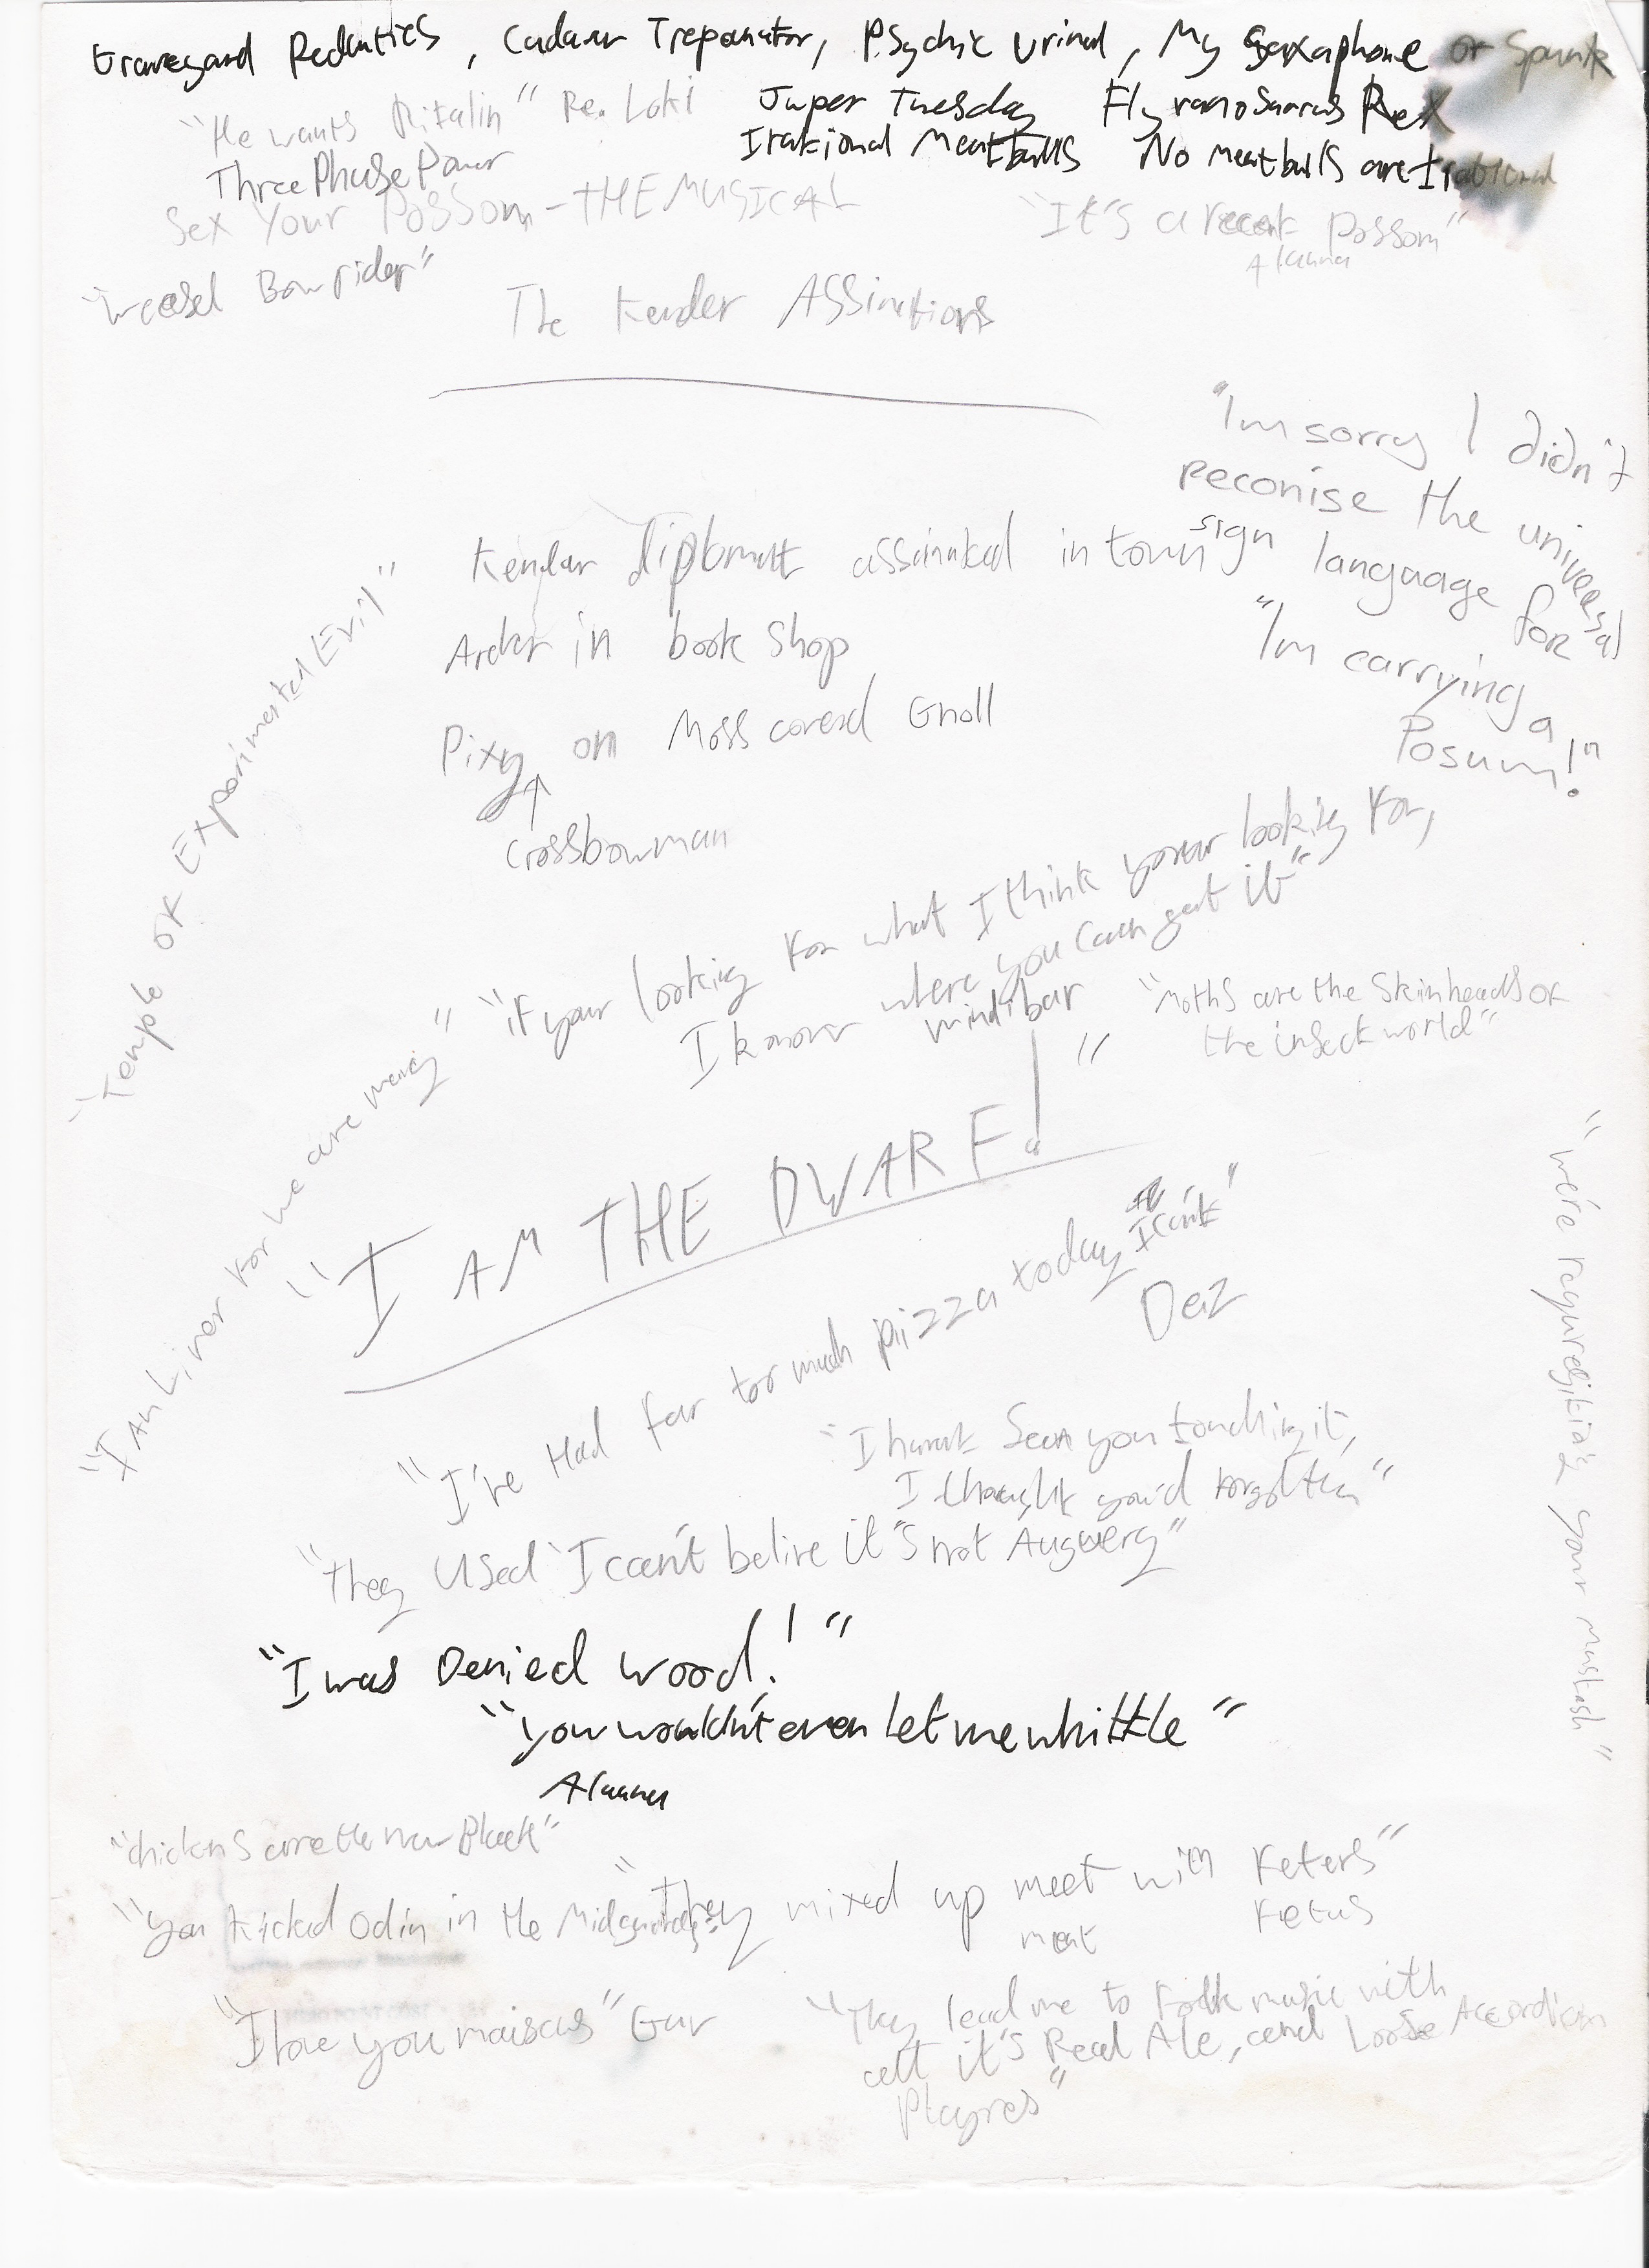 Graveyard , Cadaver Trepanator, Psychic Urinal, My Saxaphone or Spunk
"He wants Ritalin" Re. Loki
Juper Tuesday Flyranosaurus Rex
Three Phase Power
Irational Meatballs No meatballs are Irational
Sex Your Possom - THE MUSICAL
"It's a recent possom"
Alanna
"weasel Bowrider"
The Kender Assinations
"I'm sorry I didn't
reconise the universal
sign language for
"I'm carrying a
Posum!"
Kender diplomat assinated in town
Archer in book shop
Pixy on Moss covered Gnoll
crossbowman
"Temple of Experimental Evil"
"if your looking for what I think your looking for,
I know where you can get it"
mindibar
"Moths are the Skinheads of
the insect world"
"I am Liver for we are many"
"I AM THE DWARF!"
"I've Had far tor much pizza today I can't"
Daz
"we're requresiting your mustash"
"I havnt Seen you touching it,
I thought you'd forgotten"
"They Used 'I can't belive it's not Augwery"
"I was Denied wood!"
"you wouldn't even let me whittle"
Alanna
"chickens are the new Black"
"you kicked Odin in the Midgards"
"They mixed up meet with Feters"
meat Fetus
"I love you maiscus" Gav
"They lead me to folk music with
all it's Real Ale, and Loose Accordion
Playres"